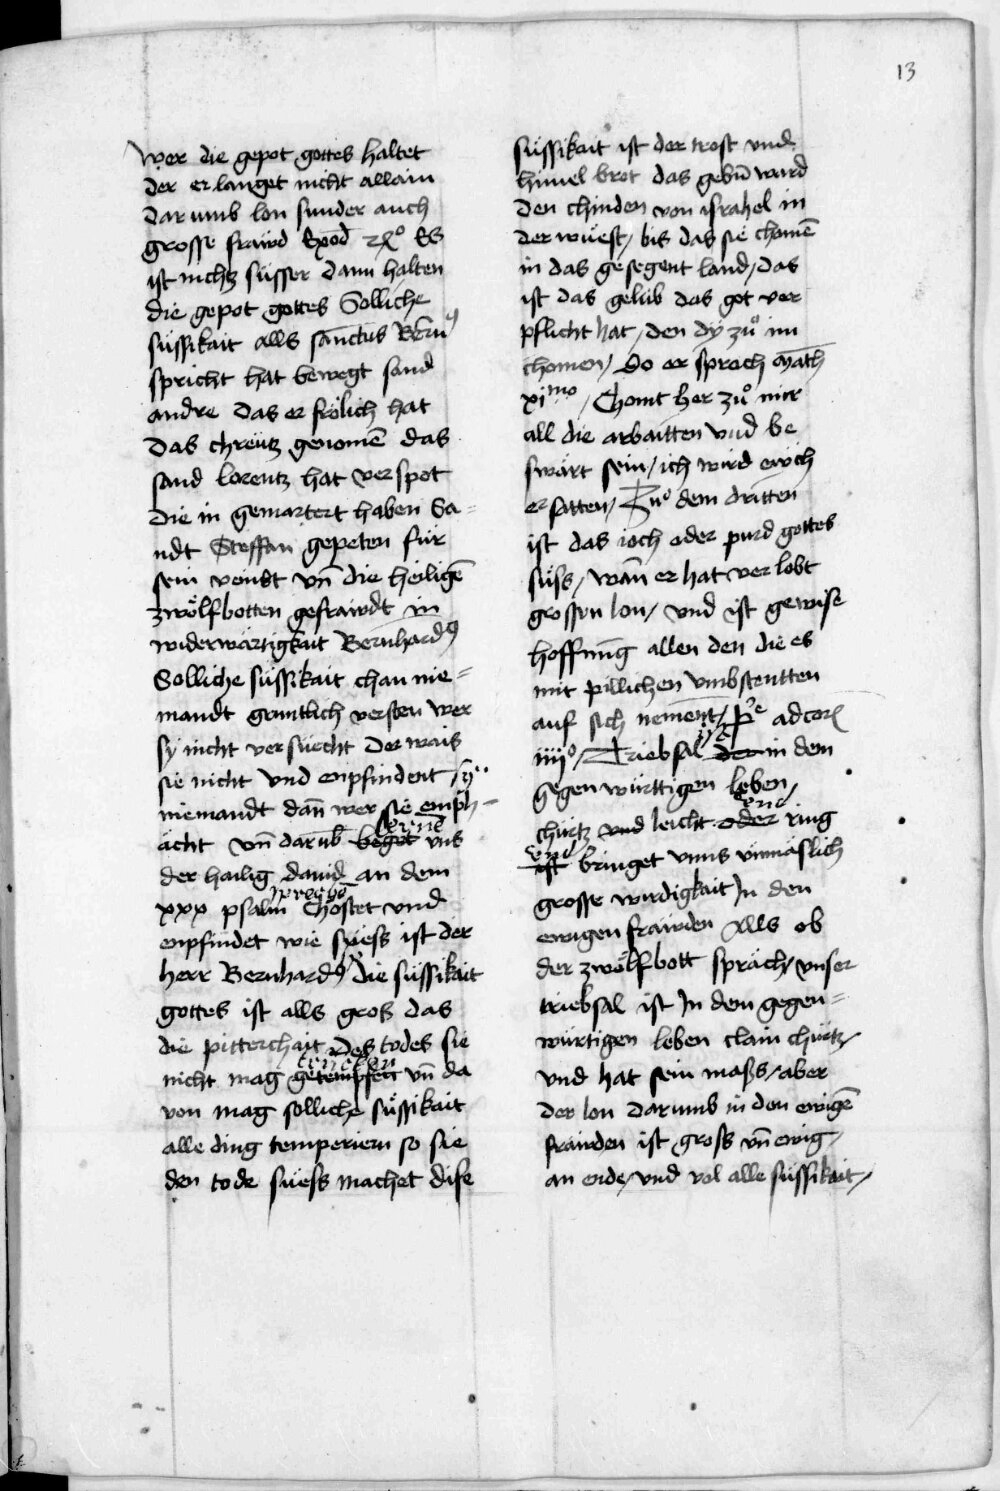 13
wer die gepot gottes haltet
der er langet nicht allain
dar umb lon sunder auch
grosse fraẅd Exod xxº Es
ist nichtz süsser dann halten
die gepot gottes Solliche
süssikait alls sanctus Bern
spricht hat bewegt sand
andre das er frölich hat
das chreütz genomē das
sand lorentz hat ver spot
die in gemartert haben Sa=
ndt Steffan gepeten für
sein veindt vn̄ die heiligē
zwölfbotten gefraẅdt in
widerwärtigkait Bernhardꝰ
Solliche süssikait chan nie=
mandt gruntlich versten wer
sy nicht ver suecht Der wais
sie nicht vnd enpfindent
niemandt dan̄ wer sie emph-
ächt vn̄ darūb beget vns
der hailig dauid an dem
xxx psalm Chostet vnd
enpfindet wie süess ist der
herr Bernhardꝰ die süssikait
gottes ist alls gross das
die pitterchait des todes sie
nicht mag getempfen vn̄ da
von mag solliche süssikait
alle ding temperiern so sie
den tode süess machet dise
süssikait ist der trost vnd
himel brot das gebn̄ ward
den chinden von israhel in
der wüest / bis das sie chomē
in das gesegent land / das
ist das gelüb das got ver
pflicht hat / den dy zuͦ im
chomen / do er sprach Math
xjmo / Chomt her zuͦ mir
all die arbaitten vnd be
swärt sein / ich wird ewch
er satten / Zuͦ dem dritten
ist das ioch oder purd gottes
süss / wan̄ er hat ver lobt
grossen lon / vnd ist gewise
hoffnūg allen den die es
mit pillichen vmbstentten
auf sich nement / ad cor
iiijº / Triebsal der in dem
gegen württigen leben /
chürtz vnd leicht oder ring
vnd
ist bringet vnns vnmäslich
grosse wirdigkait In den
ewigen fraẅden Alls ob
der zwölfbott spräch / vnser
triebsal ist In dem gegen=
würtigen leben clain chürtz /
vnd hat sein mass / aber
der lon darumb in den ewigē
fraẅden ist gross vn̄ ewig /
an ende / vnd vol alle süssikait /